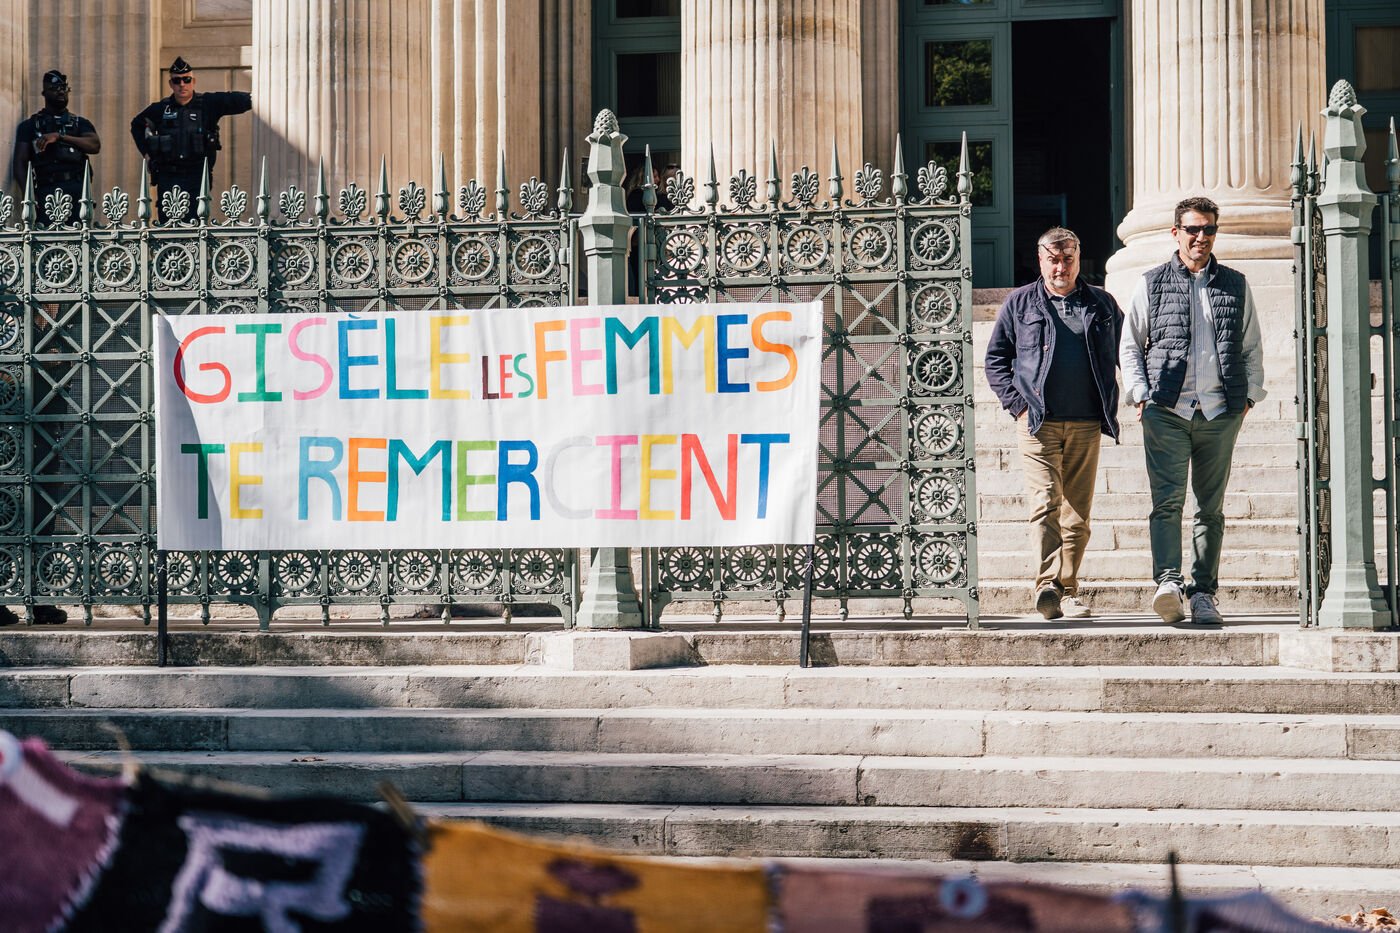 GISÈLE LES FEMMES
TE REMERCIENT
R